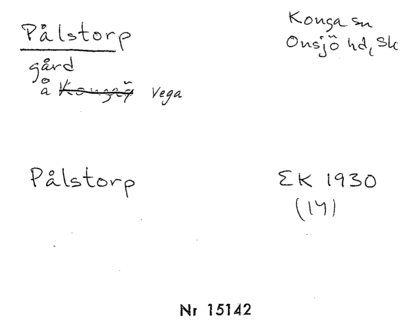 Pålstorp
Konga sn
Onsjö hd, Sk
gård
å Kongaö Vega
Pålstorp
EK 1930
(14)
Nr 15142